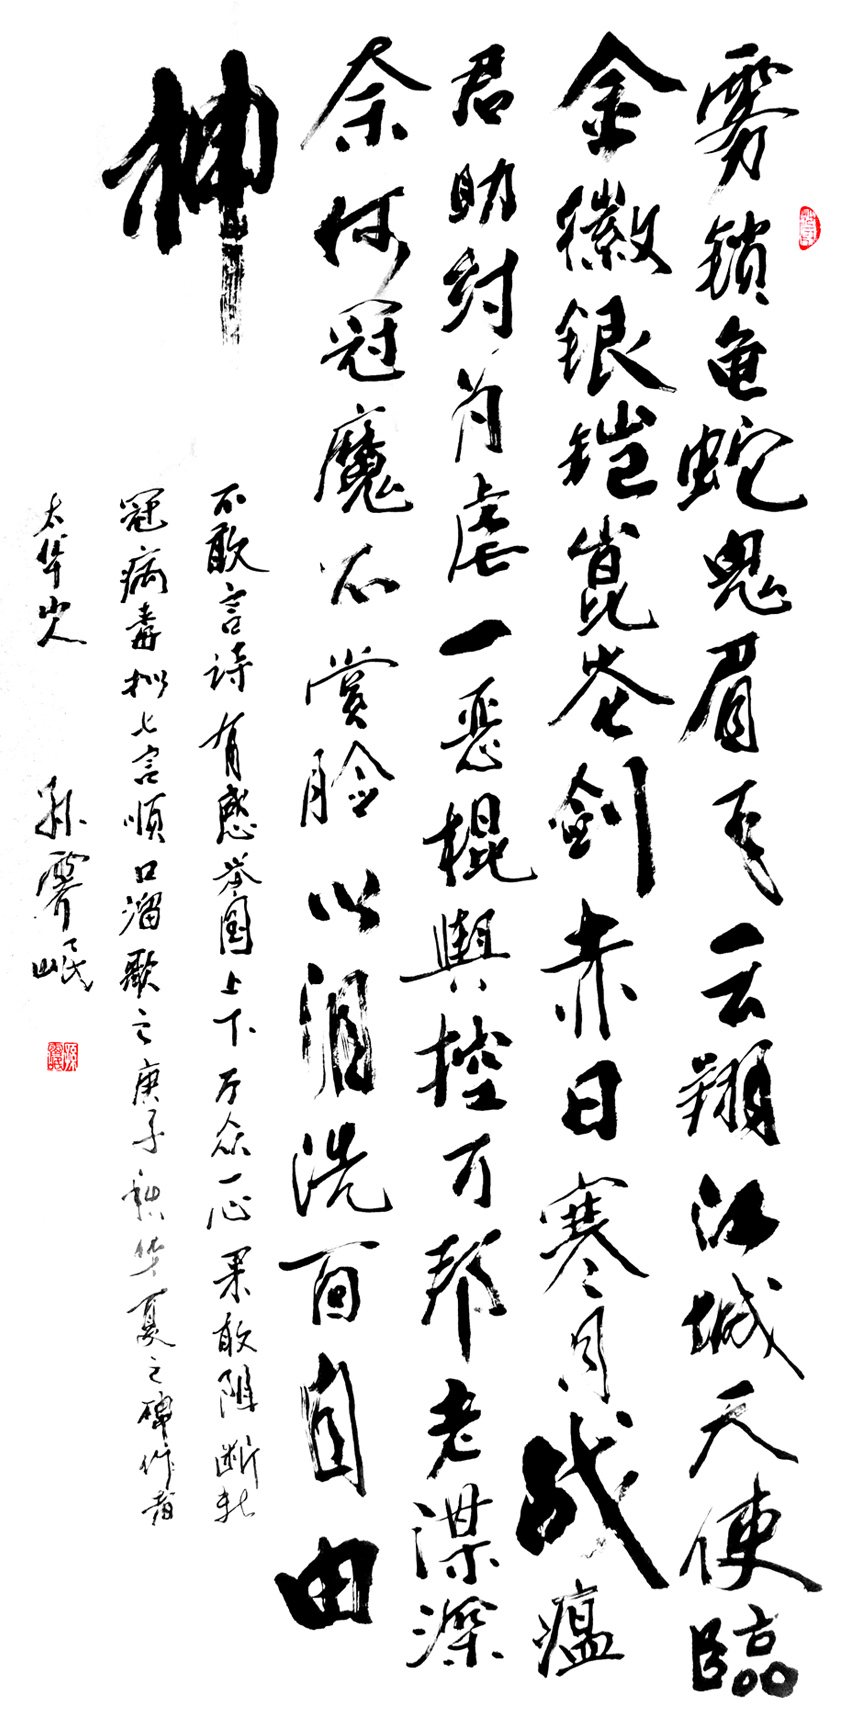 雾锁龟蛇鬼眉云翔江城天使臨
金徽银铠崑仑剑赤日寒月战瘟
君助纣为虐一恶棍舆控万邦老谋深
奈何冠魔不赏脸以泪洗面自由
神
不敢言诗有感举国上下万众一心果敢阻断新
冠病毒拟七言顺口溜歌之庚子华夏之碑作者
太华山人 孙霁岷